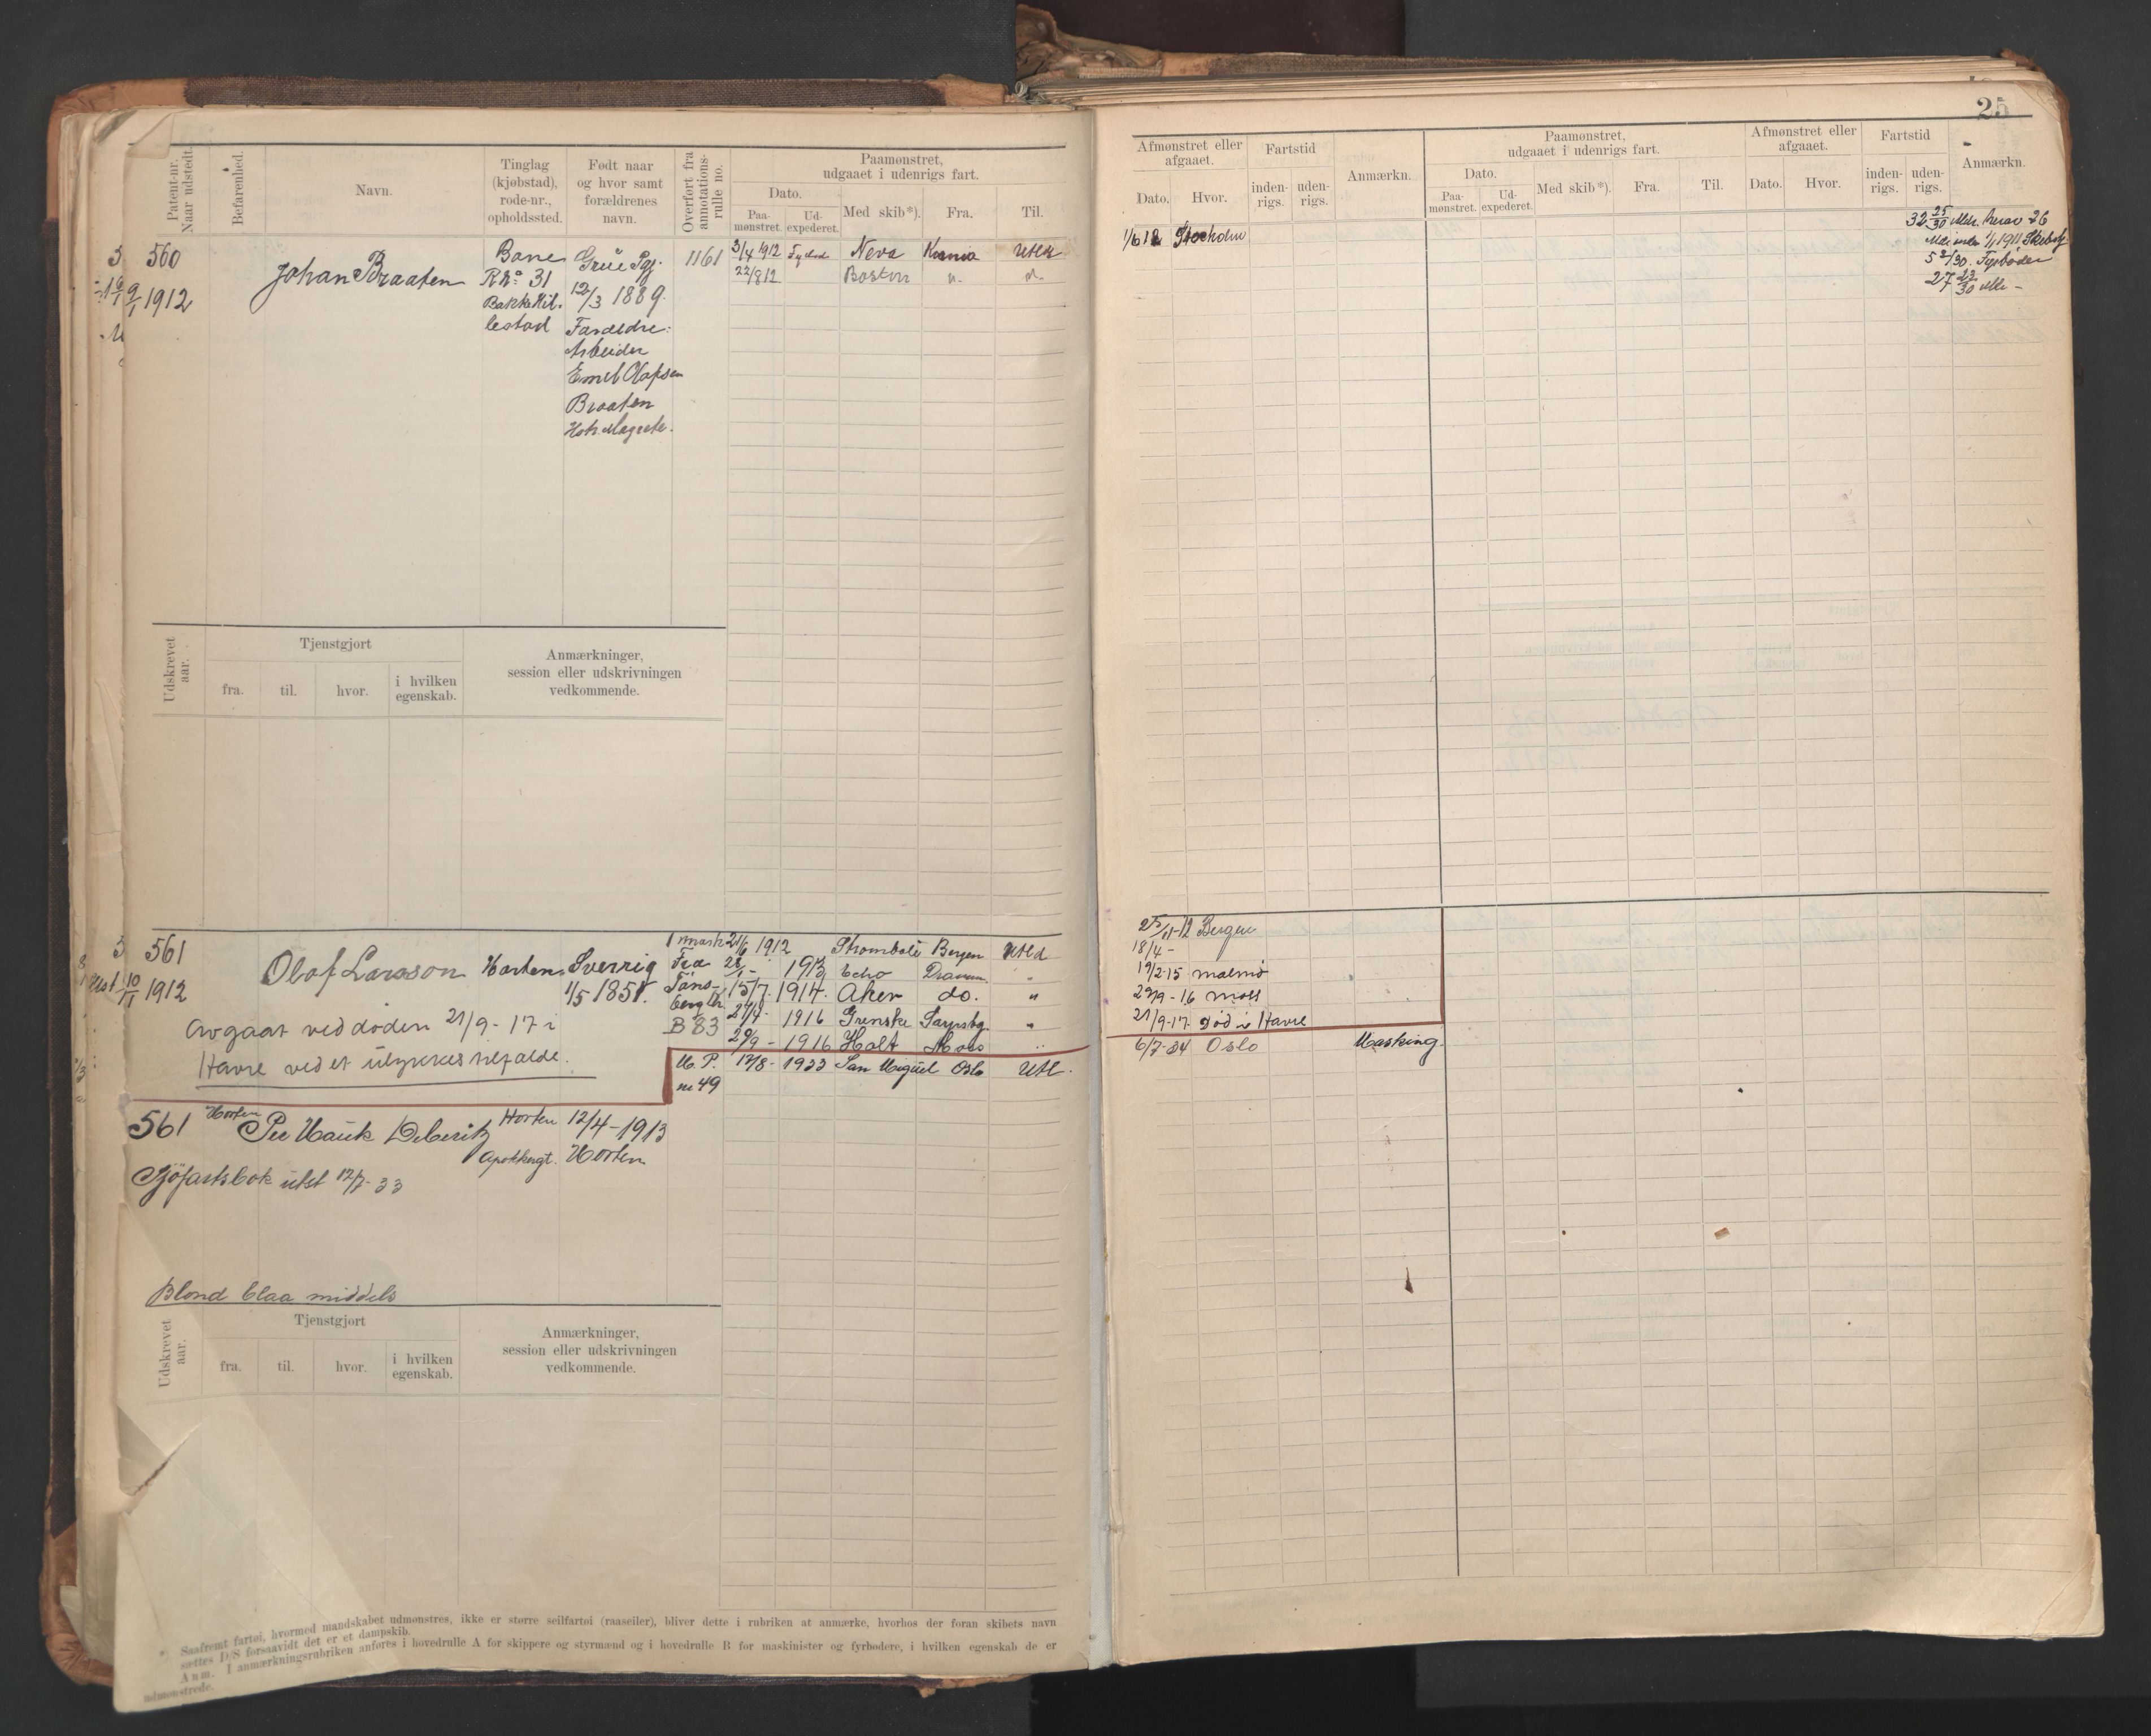 25
Patent-nr.
Naar udstedt.
Befarenhed.
Navn.
Tinglag
(kjøbstad),
rode-nr.,
opholdssted.
Født naar
og hvor samt
forældrenes
navn.
Overført fra
annotations-
rulle no.
Paamønstret,
udgaaet i udenrigs fart.
Dato.
Paa-
mønstret.
Ud-
expederet.
Med skib*).
Fra.
Til.
560
9/1 1912
Johan Braaten
Borre
R No 31
lestad
Grue Pgj.
12/3 1889.
Forældre:
Arbeider
Emil Olafsen
Braaten
1161
3/4 1912 Neva Utld
22/8 12 Boston
Udskrevet
aar.
Tjenstgjort
fra.
til.
hvor.
i hvilken
egenskab.
Anmærkninger,
session eller udskrivningen
vedkommende.
561
10/1 1912
Olaf Larsson Horten Sverrig
1/5 1851.
Avgaat ved døden 21/9-17 i
Havre ved et ulykkestilfælde.
Fra
Tøns-
berg
B 83
1912 Stromboli Bergen Utld
1913 Echo Drammen "
15/7 1914. Aker do. "
1916 Grenske Sarpsbg. "
29/9 - 1916 Holt Moss "
M. P.
nr 49
17/8 - 1933 San Miguel Oslo Utl.
561 Horten Per Hauk Deberitz Horten 12/4-1913
Apothekergt. Horten
Sjöfartsbok utst 12/7-33
Blond blaa middels
Udskrevet
aar.
Tjenstgjort
fra.
til.
hvor.
i hvilken
egenskab.
Anmærkninger,
session eller udskrivningen
vedkommende.
* Saafremt fartøi, hvormed mandskabet udmønstres, ikke er større seilfartøi (raaseiler), bliver dette i rubriken at anmærke, hvorhos der foran skibets navn
sættes D/S forsaavidt det er et dampskib.
Anm. I anmærkningsrubriken anføres i hovedrulle A for skippere og styrmænd og i hovedrulle B for maskinister og fyrbødere, i hvilken egenskab de er
udmønstrede.
Afmønstret eller
afgaaet.
Dato.
Hvor.
Fartstid
inden-
rigs.
uden-
rigs.
Anmærkn.
Paamønstret,
udgaaet i udenrigs fart.
Dato.
Paa-
mønstret.
Ud-
expederet.
Med skib*).
Fra.
Til.
Afmønstret eller
afgaaet.
Dato.
Hvor.
Fartstid
inden-
rigs.
uden-
rigs.
Anmærkn.
1/6 12 Stockholm
32 25/30 Mdr. herav 26
Fyrbøder
27 22/30
25/11-12 Bergen
18/4 -
19/2-15 Malmö
29/9-16 Moss
21/9-17. Død i Havre
6/7-34 Oslo